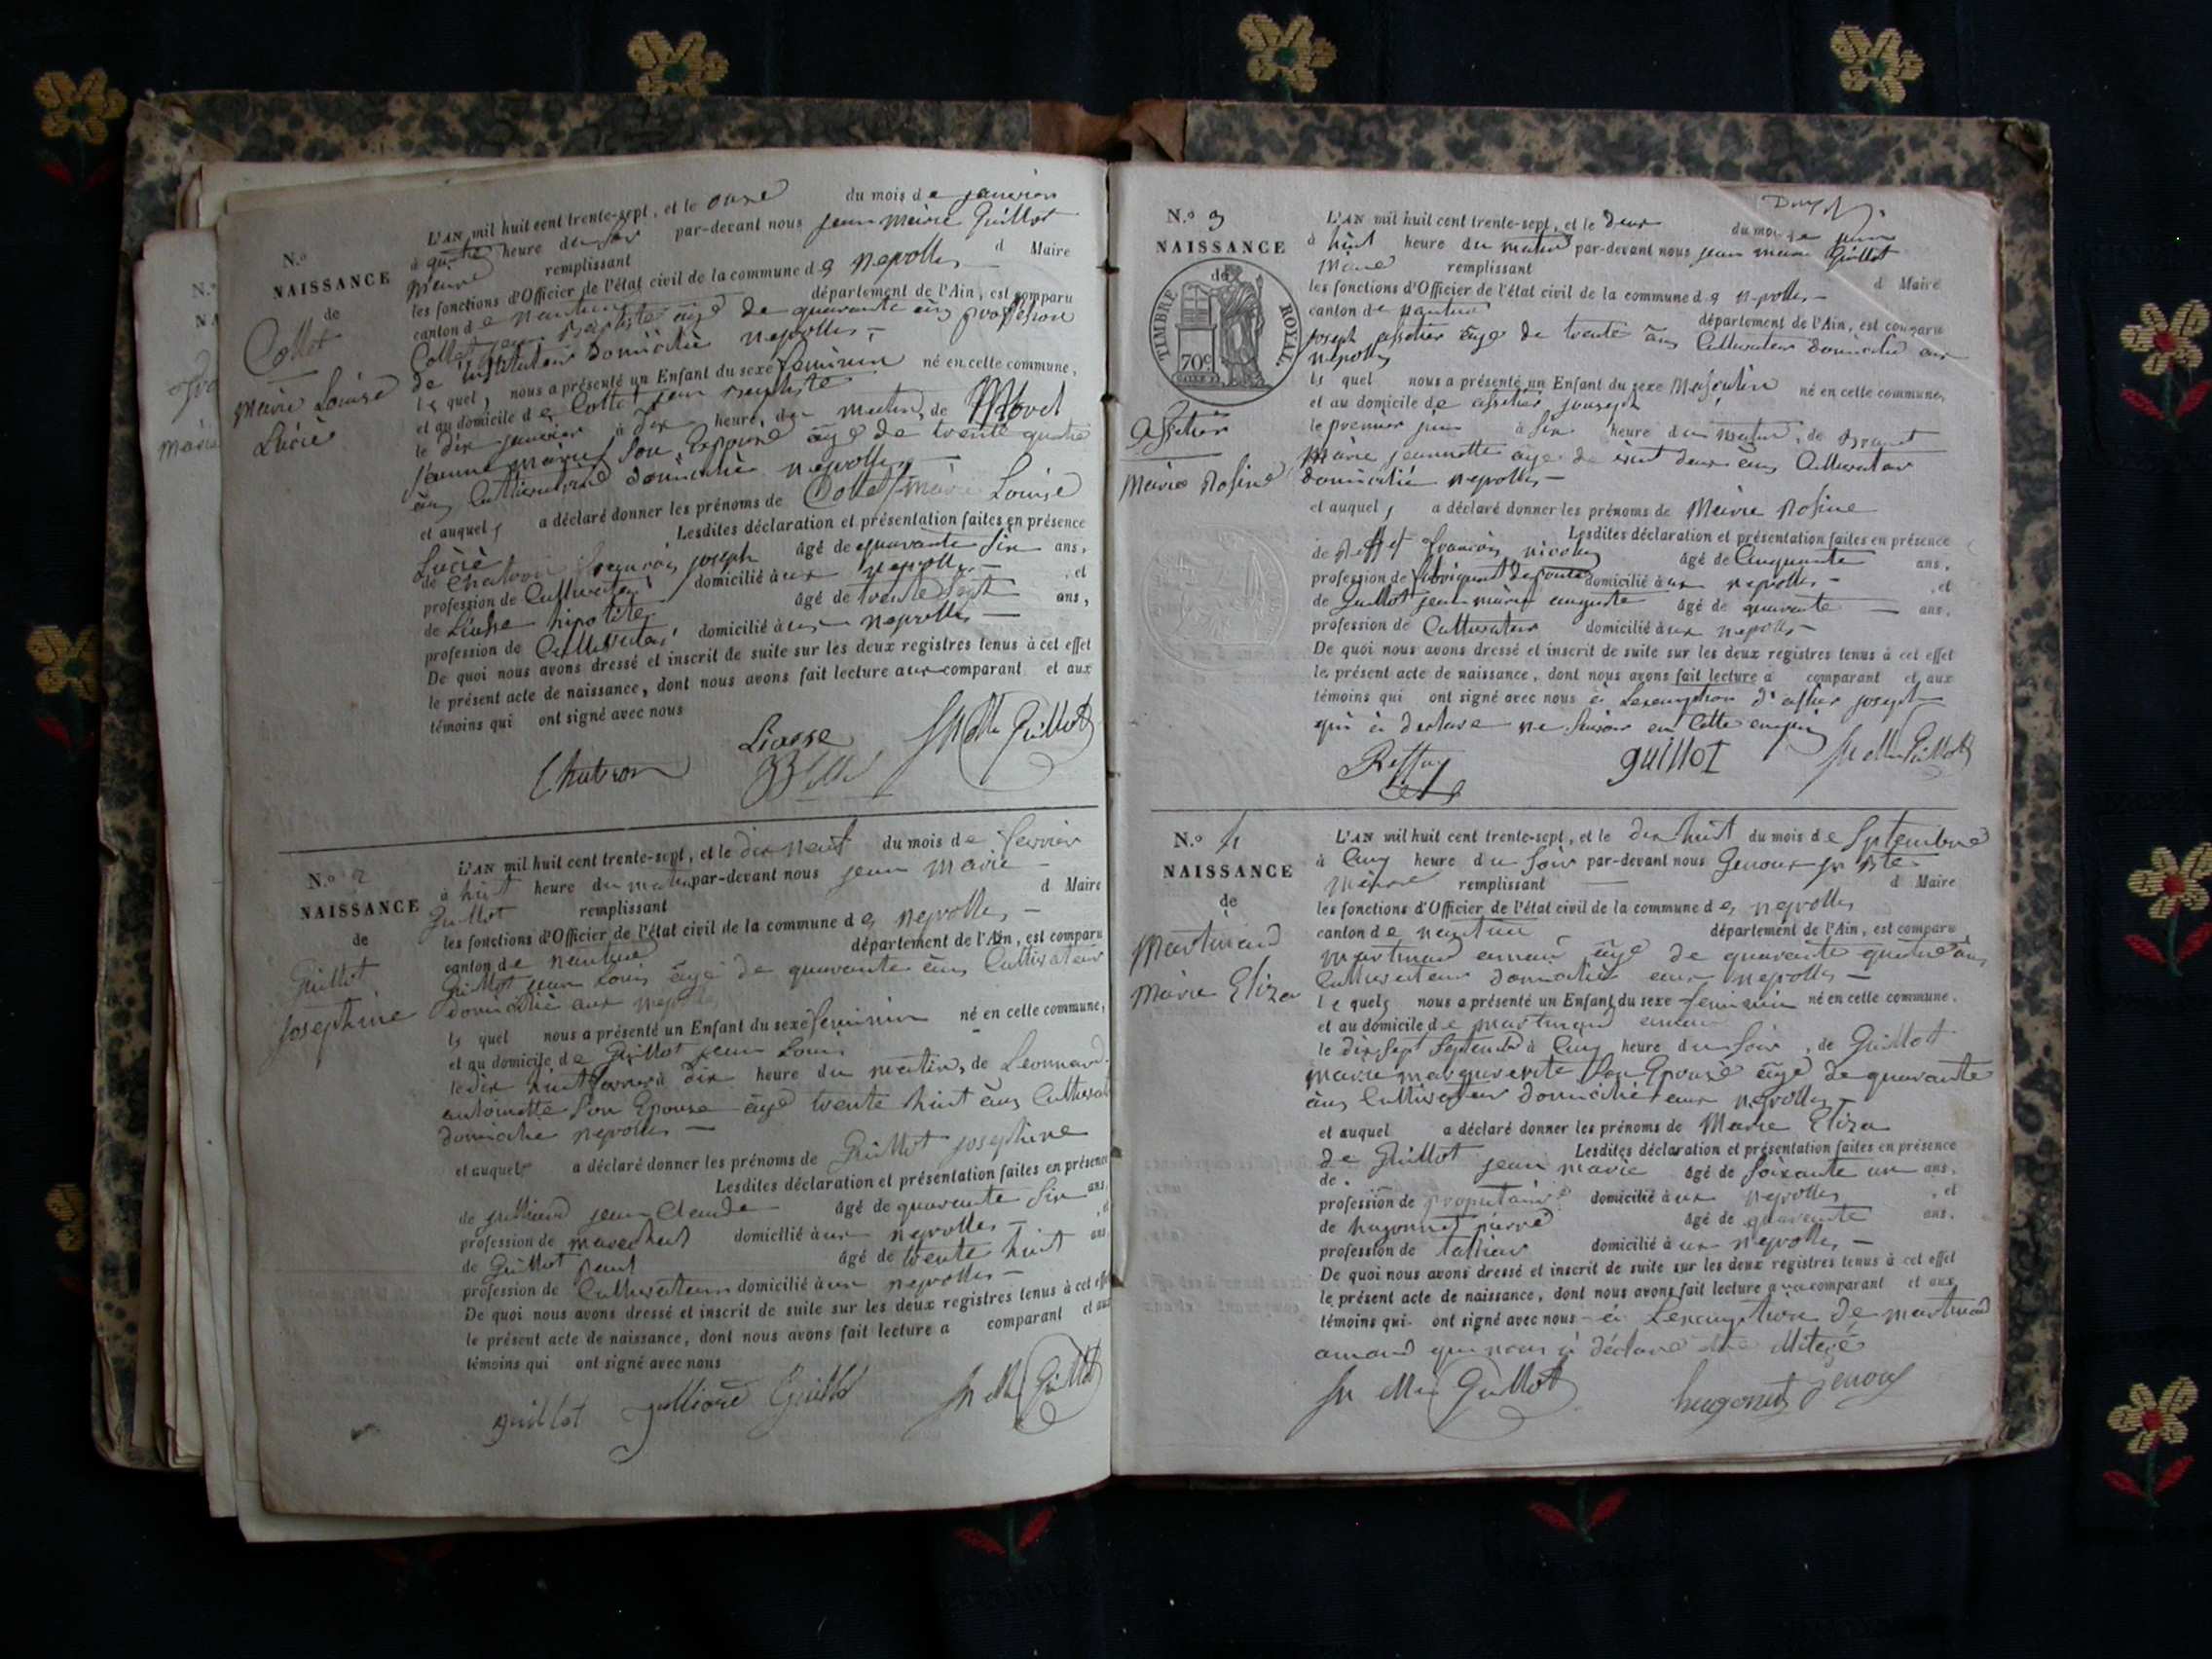 N.º
NAISSANCE
de
Collet
Marie Louise
Lucie
L'AN mil huit cent trente-sept, et le onze du mois de janvier
à quatre heure du soir par-devant nous jean marie Guillot
Maire remplissant d Maire
les fonctions d'Officier de l'état civil de la commune des neyrolles
canton de nantua département de l'Ain, est comparu
Collet jean Baptiste âgé de quarante ans profession
de instituteur domicilié neyrolles
le quel, nous a présenté un Enfant du sexe feminin né en cette commune,
et au domicile de Collet jean Baptiste
le dix janvier à dix heure du matin, de
jeanne marie son Epouse âgé de trente quatre
ans Cultivatrice domicilié neyrolles
et auquel, a déclaré donner les prénoms de Collet marie Louise
Lucie Lesdites déclaration et présentation faites en présence
de Chatron françois joseph âgé de quarante six ans,
profession de Cultivateur domicilié aux neyrolles, et
de Liasse hipolite âgé de trente sept ans,
profession de Cultivateur domicilié aux neyrolles
De quoi nous avons dressé et inscrit de suite sur les deux registres tenus à cet effet
le présent acte de naissance, dont nous avons fait lecture aux comparant et aux
témoins qui ont signé avec nous
Chatron Liasse Guillot
N.º 2
NAISSANCE
de
Guillot
josephine
L'AN mil huit cent trente-sept, et le dix neuf du mois de fevrier
à huit heure du matin par-devant nous jean marie
Guillot remplissant d Maire
les fonctions d'Officier de l'état civil de la commune des neyrolles
canton de nantua département de l'Ain, est comparu
Guillot jean Louis âgé de quarante ans Cultivateur
domicilié aux neyrolles
le quel nous a présenté un Enfant du sexe feminin né en cette commune,
et au domicile de Guillot jean Louis
le dix huit fevrier à dix heure du matin, de Leonnard
antoinette son Epouse âgé trente huit ans
domicilié neyrolles
et auquel a déclaré donner les prénoms de Guillot josephine
Lesdites déclaration et présentation faites en présence
de julliard jean Claude âgé de quarante six ans
profession de marechal domicilié aux neyrolles, et
de Guillot âgé de trente huit ans
profession de Cultivateur domicilié aux neyrolles
De quoi nous avons dressé et inscrit de suite sur les deux registres tenus à cet effet
le présent acte de naissance, dont nous avons fait lecture a comparant et aux
témoins qui ont signé avec nous
guillot julliard Guillot
N.º 3
NAISSANCE
de
TIMBRE ROYAL
70c
Marie Rosine
L'AN mil huit cent trente-sept, et le deux du mois de juin
à huit heure du matin par-devant nous jean marie Guillot
Maire remplissant d Maire
les fonctions d'Officier de l'état civil de la commune des neyrolles
canton de nantua département de l'Ain, est comparu
joseph âgé de trente ans Cultivateur domicilié aux
neyrolles
le quel nous a présenté un Enfant du sexe Masculin né en cette commune,
et au domicile de
le premier juin à six heure du matin, de
Marie jeannette âgé de vint deux ans Cultivateur
domicilié neyrolles
et auquel, a déclaré donner les prénoms de Marie Rosine
Lesdites déclaration et présentation faites en présence
de françois nicolas âgé de Cinquante ans,
profession de domicilié aux neyrolles, et
de Guillot jean marie auguste âgé de quarante ans,
profession de Cultivateur domicilié aux neyrolles
De quoi nous avons dressé et inscrit de suite sur les deux registres tenus à cet effet
le présent acte de naissance, dont nous avons fait lecture a comparant et aux
témoins qui ont signé avec nous joseph
qui à declare ne
guillot
N.º 4
NAISSANCE
de
Martinand
Marie Eliza
L'AN mil huit cent trente-sept, et le dix huit du mois de Septembre
à Cinq heure du soir par-devant nous Genoux
remplissant d Maire
les fonctions d'Officier de l'état civil de la commune des neyrolles
canton de nantua département de l'Ain, est comparu
Martinand âgé de quarante quatre ans
Cultivateur domicilié aux neyrolles
le quel, nous a présenté un Enfant du sexe feminin né en cette commune,
et au domicile de Martinand
le dix sept septembre à Cinq heure du soir, de Guillot
marie marguerite son Epouse âgé de quarante
ans Cultivateur domicilié aux neyrolles
et auquel a déclaré donner les prénoms de Marie Eliza
Lesdites déclaration et présentation faites en présence
de Guillot jean marie âgé de soixante un ans,
profession de propriétaire domicilié aux neyrolles, et
de hugonnet pierre âgé de quarante ans,
profession de domicilié aux neyrolles
De quoi nous avons dressé et inscrit de suite sur les deux registres tenus à cet effet
le présent acte de naissance, dont nous avons fait lecture aux comparant et aux
témoins qui ont signé avec nous de martinand
amand qui nous à déclaré
Guillot hugonnet genoux